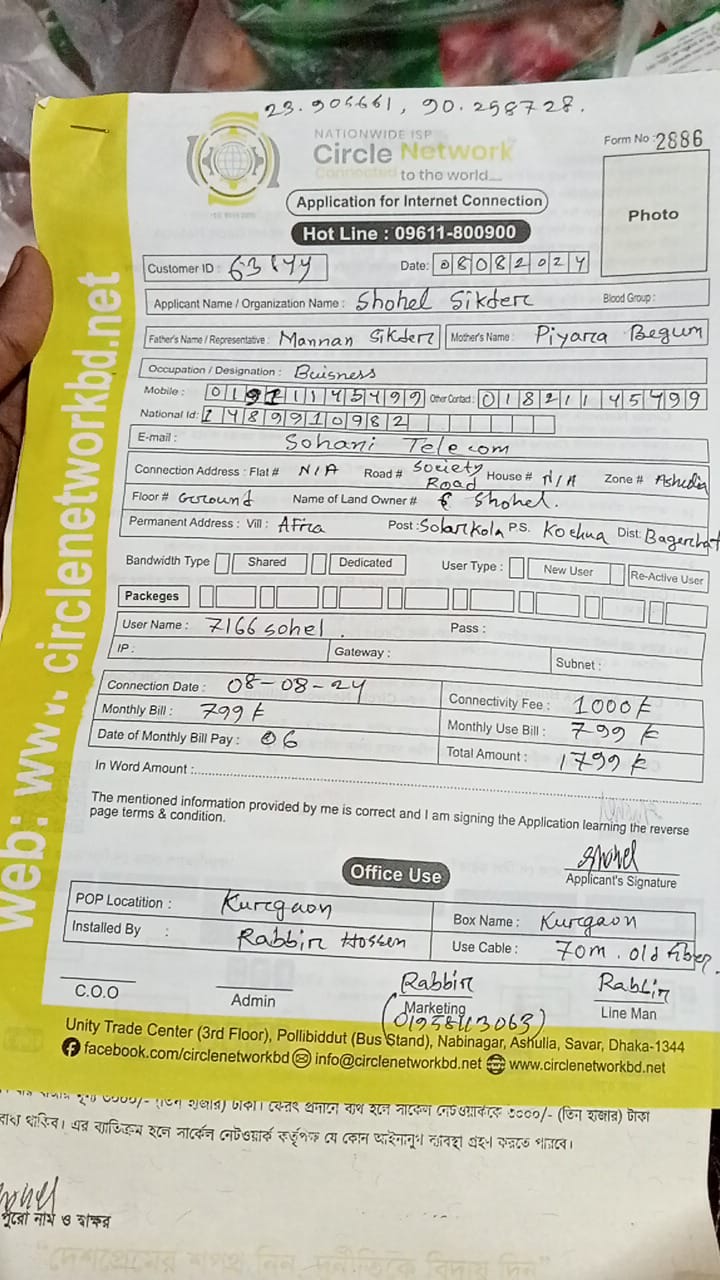 23.905661, 90.258728.
NATIONWIDE ISP
Circle Network
Connected to the world....
Form No : 2886
Photo
Application for Internet Connection
Hot Line : 09611-800900
Customer ID : 63144
Date: 08082024
Applicant Name / Organization Name : Shohel Sikder
Blood Group :
Father's Name / Representative : Mannan Sikder
Mother's Name : Piyara Begum
Occupation / Designation : Buisness
Mobile : 01911145499 Other Contact : 01821145499
National Id: 1489910982
E-mail : Sohani Telecom
Connection Address : Flat # N/A Road # Society Road House # N/A Zone # Ashulia
Floor # Ground Name of Land Owner # Shohel.
Permanent Address : Vill : Afra Post : Solarkola P.S. Kochua Dist: Bagerhat
Bandwidth Type Shared Dedicated User Type : New User Re-Active User
Packeges
User Name : 7166sohel. Pass :
IP : Gateway : Subnet :
Connection Date : 08-08-24
Connectivity Fee : 1000 ৳
Monthly Bill : 799 ৳
Monthly Use Bill : 799 ৳
Date of Monthly Bill Pay : 06
Total Amount : 1799 ৳
In Word Amount :
The mentioned information provided by me is correct and I am signing the Application learning the reverse
page terms & condition.
Shohel
Applicant's Signature
Office Use
POP Locatition : Kurgaon
Box Name : Kurgaon
Installed By : Rabbir Hossen
Use Cable : 70m. old fiber.
C.O.O
Admin
Rabbir
Marketing
(01958113063)
Rabbir
Line Man
Unity Trade Center (3rd Floor), Pollibiddut (Bus Stand), Nabinagar, Ashulia, Savar, Dhaka-1344
facebook.com/circlenetworkbd info@circlenetworkbd.net www.circlenetworkbd.net
Web: www.circlenetworkbd.net
৩০০০/- (তিন হাজার) টাকা। ফেরৎ প্রদানে ব্যর্থ হলে সার্কেল নেটওয়ার্ককে ৩০০০/- (তিন হাজার) টাকা
বাধ্য থাকিব। এর ব্যতিক্রম হলে সার্কেল নেটওয়ার্ক কর্তৃপক্ষ যে কোন আইনানুগ ব্যবস্থা গ্রহণ করতে পারবে।
পুরো নাম ও স্বাক্ষর
"দেশপ্রেমের শপথ নিন, দুর্নীতিকে বিদায় দিন"